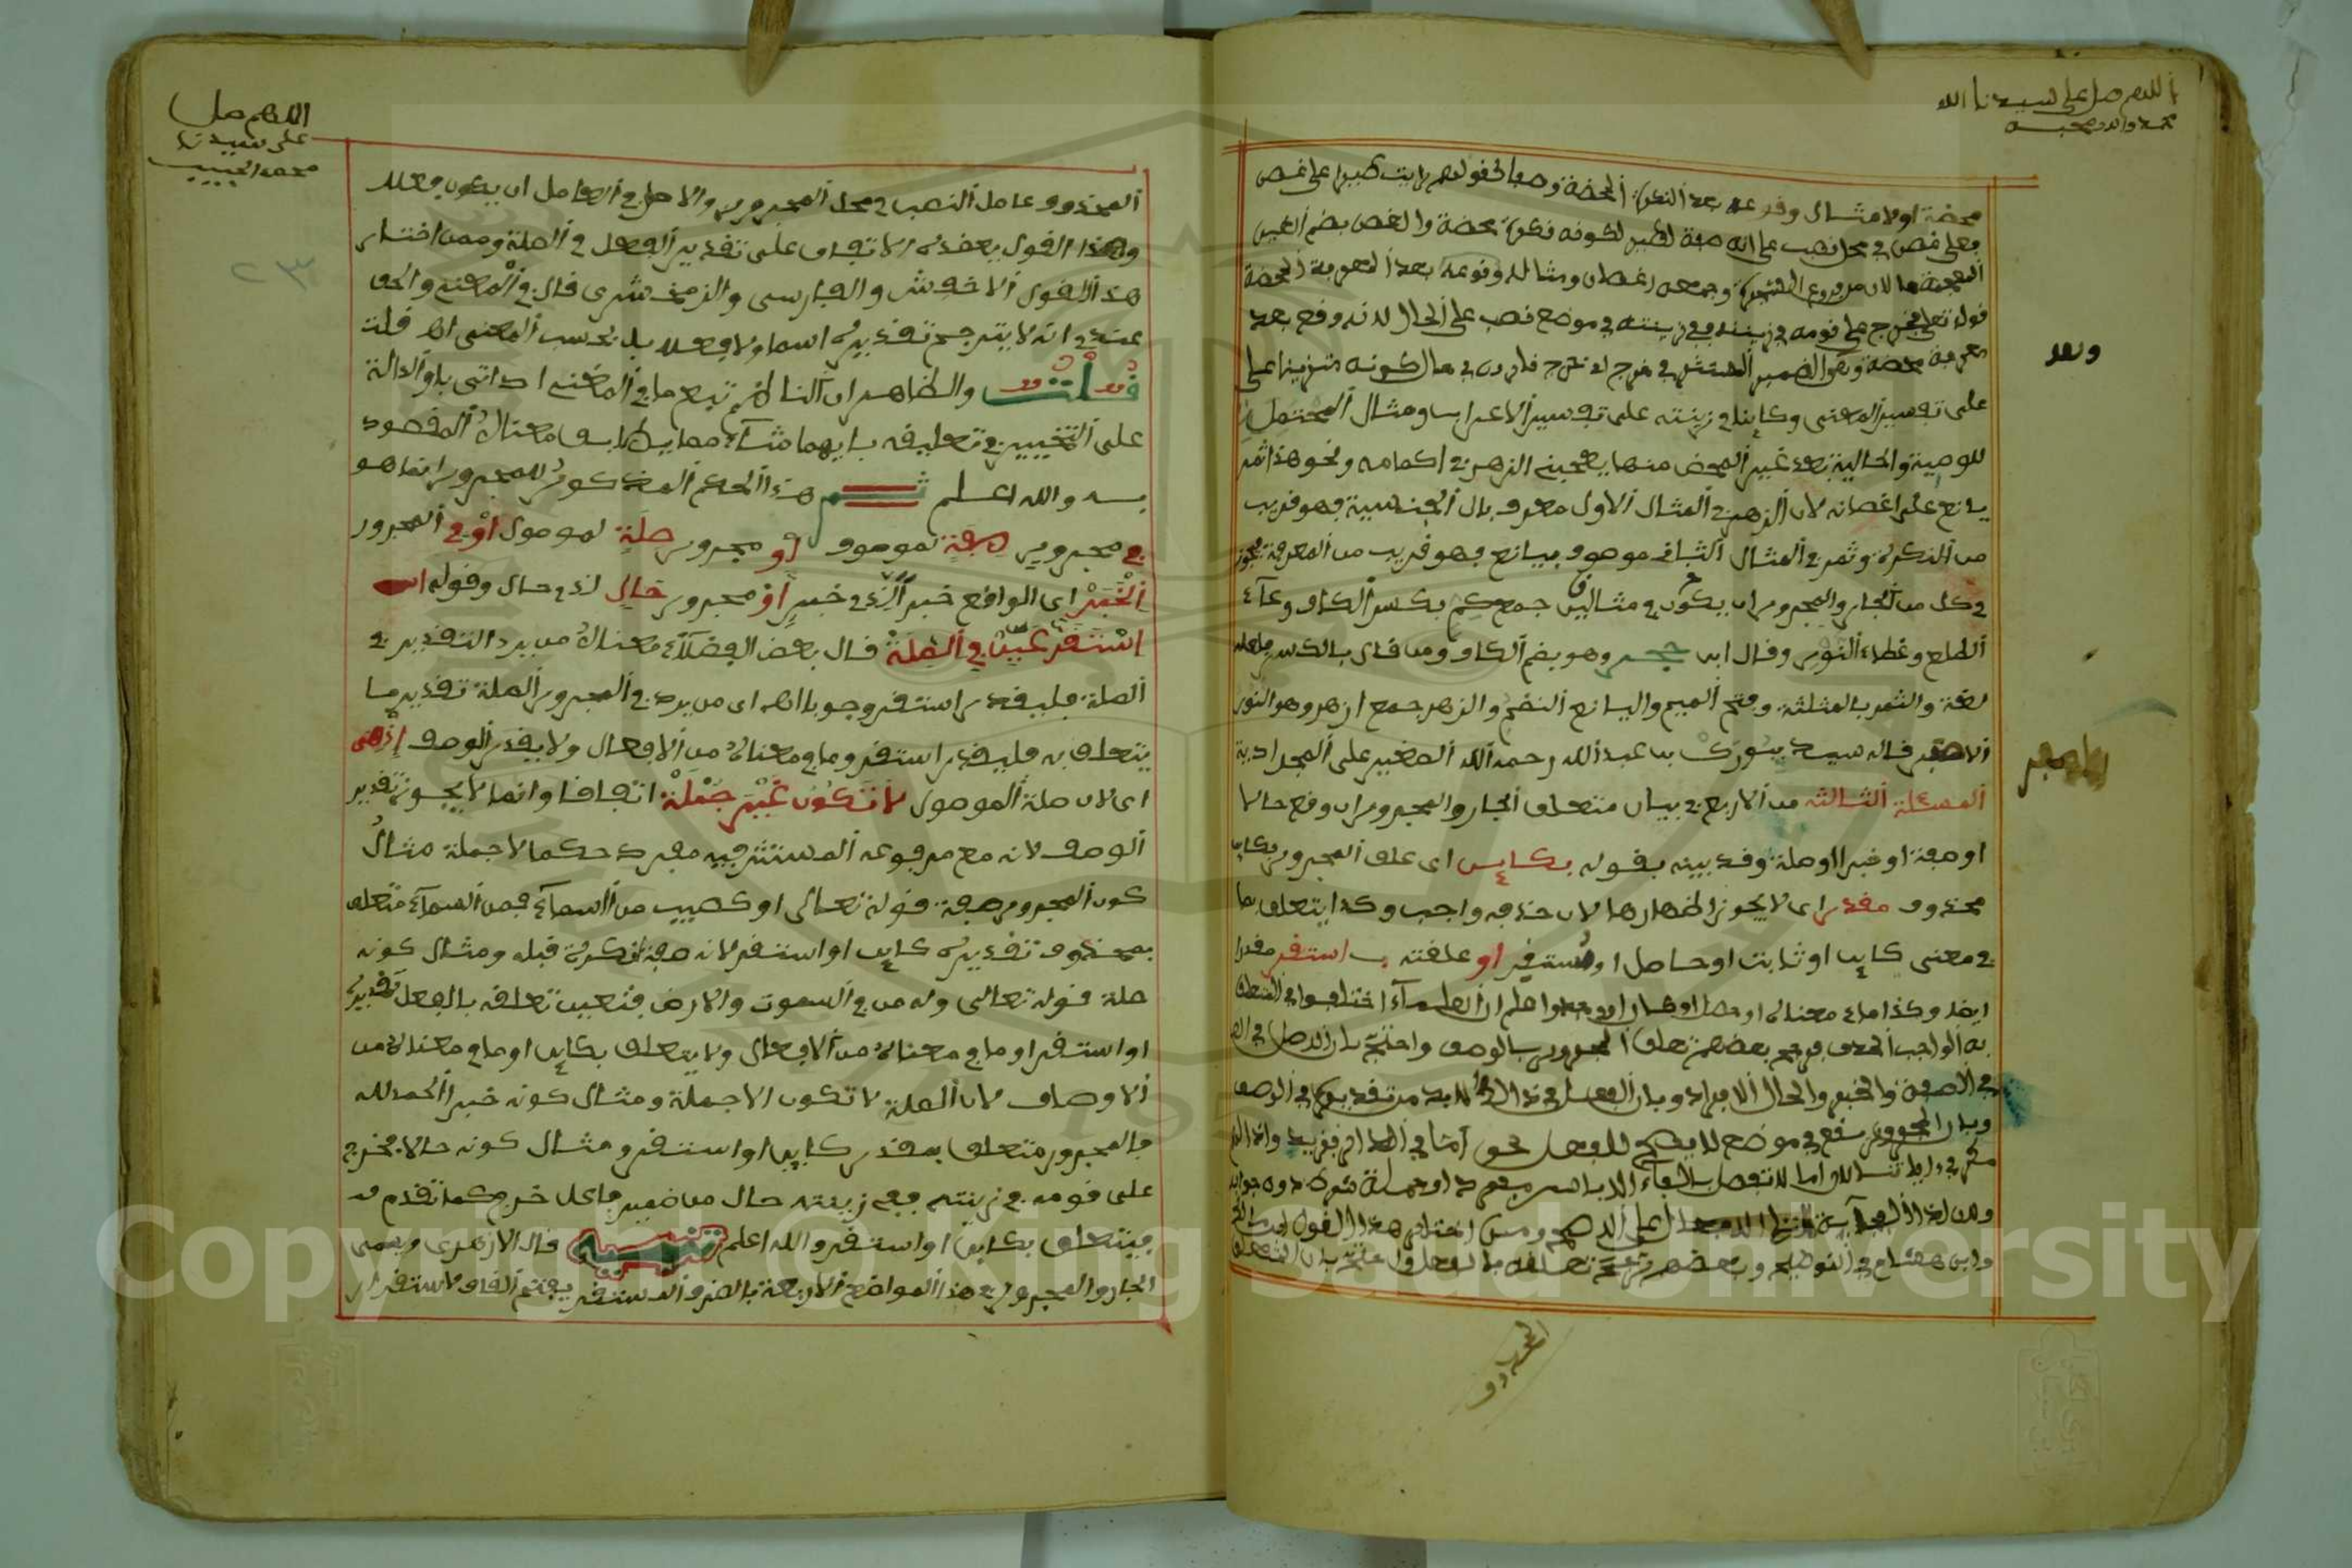 اللهم صل على سيدنا
محمد واله وصحبه
محضة اولا مثال وقوعه بعد النكرة المحضة وصفا نحو قولهم رايت طيرا على غصن
فعلى غصن في محل نصب على انه صفة لطير لكونه نكرة محضة والغصن بضم الغين
المعجمة وجمعه اغصان ومثاله وقوعه بعد المعرفة المحضة
قوله تعلى فخرج على قومه في زينته ففي زينته في موضع نصب على الحال لانه وقع بعد
وبعد
معرفة محضة وهو الضمير المستتر في خرج اى خرج قارون في حال كونه متزينا على
على تفسير المعنى وكاينا في زينته على تفسير الاعراب ومثال المحتمل
للوصفية والحالية بعد غير المحض منهما يعجبني الزهر في اكمامه ونحو هذا ثمر
يانع على اغصانه لان الزهر في المثال الاول معرف بال الجنسية فهو قريب
من النكرة وثمر في المثال الثاني موصوف بيانع فهو قريب من المعرفة فيجوز
في كل من الجار والمجرور ان يكون في مثالين جمع كم بكسر الكاف وعاء
الطلع وغطاء النور وقال ابن حجر وهو بضم الكاف ومن قال بالكسر
لغة والثمر بالمثلثة وفتح الميم واليانع النضج والزهر جمع ازهر وهو النور
الاصفر قاله سيد بيورك بن عبد الله رحمه الله الصغير على المجرادية
المسئلة الثالثة من الاربع في بيان متعلق الجار والمجرور ان وقع حالا
او صفة او خبرا او صلة وقد بينه بقوله بكاين اى علق المجرور بكاين
محذوف مقدر اى لا يجوز اظهارها لان حذفه واجب وكذا يتعلق بما
في معنى كاين او ثابت او حاصل او مستقر او علقته ب استقر مقدرا
ايضا وكذا ما في معناه او حصل او كان واعلم ان العلماء اختلفوا في المتعلق
به الواجب الحذف فرجح بعضهم تعلق المجرور بالوصف واحتج بان الاصل في
في الصفة والخبر والحال الافراد وبان الفعل في ذالك لابد من تقديره في الوصف
وبان المجرور يقع في موضع لا يصح للفعل نحو اما في الدار فزيد واذا لهم
مكر في ءاياتنا لان اما لا تفصل بالفاء الا باسم مفرد او جملة شرط دون جوابه
وابن هشام في التوضيح وبعضهم رجح تعلقه بالفعل واحتج بان المتعلق
المحذوف
اللهم صل
على سيدنا
محمد الحبيب
المحذوف عامل النصب في محل المجرور والاصل في العامل ان يكون فعلا
وهذا القول يعضده الاتفاق على تقدير الفعل في الصلة وممن اختار
هذا القول الاخفش والفارسي والزمخشري قال في المعنى والحق
عندي انه لا يترجح تقديره اسما ولا فعلا بل بحسب المعنى اه قلت
قلت والظاهر ان الناظم تبع ما في المغني اذ اتى باو الدالة
على التخيير في تعليقه بايهما شاء مما يطابق معناه المقصود
به والله اعلم ثم هذا الحكم المذكور للمجرور انما هو
في مجرور صفة لموصوف او مجرور صلة لموصول او في المجرور
الخبر اى الواقع خبرا اى في خبر او مجرور حال اى في حال وقوله
استقر عين في الصلة قال بعض الفضلاء معناه من يرد التقدير في
الصلة فليقدر استقر وجوبا اه اى من يرد في المجرور الصلة تقدير ما
يتعلق به فليقدر استقر وما في معناه من الافعال ولا يقدر الوصف اذ هي
اى لان صلة الموصول لا تكون غير جملة اتفاقا وانما لا يجوز تقدير
الوصف لانه مع مرفوعه المستتر فيه مفرد حكما لا جملة مثال
كون المجرور صفة قوله تعالى او كصيب من السماء فمن السماء متعلق
بمحذوف تقديره كاين او استقر لانه صفة لنكرة قبله ومثال كونه
صلة قوله تعالى وله من في السموت والارض فتعين تعلقه بالفعل تقديره
او استقر او ما في معناه من الافعال ولا يتعلق بكاين او ما في معناه من
الاوصاف لان الصلة لا تكون الا جملة ومثال كونه خبرا الحمد لله
فالمجرور متعلق بمقدر كاين او استقر ومثال كونه حالا فخرج
على قومه في زينته ففي زينته حال من ضمير فاعل خرج كما تقدم
فيتعلق بكاين او استقر والله اعلم تنبيه قال الازهري ويسمى
الجار والمجرور في هذا المواضع الاربعة بالظرف المستقر بفتح القاف لاستقرار
Copyright © King Saud University